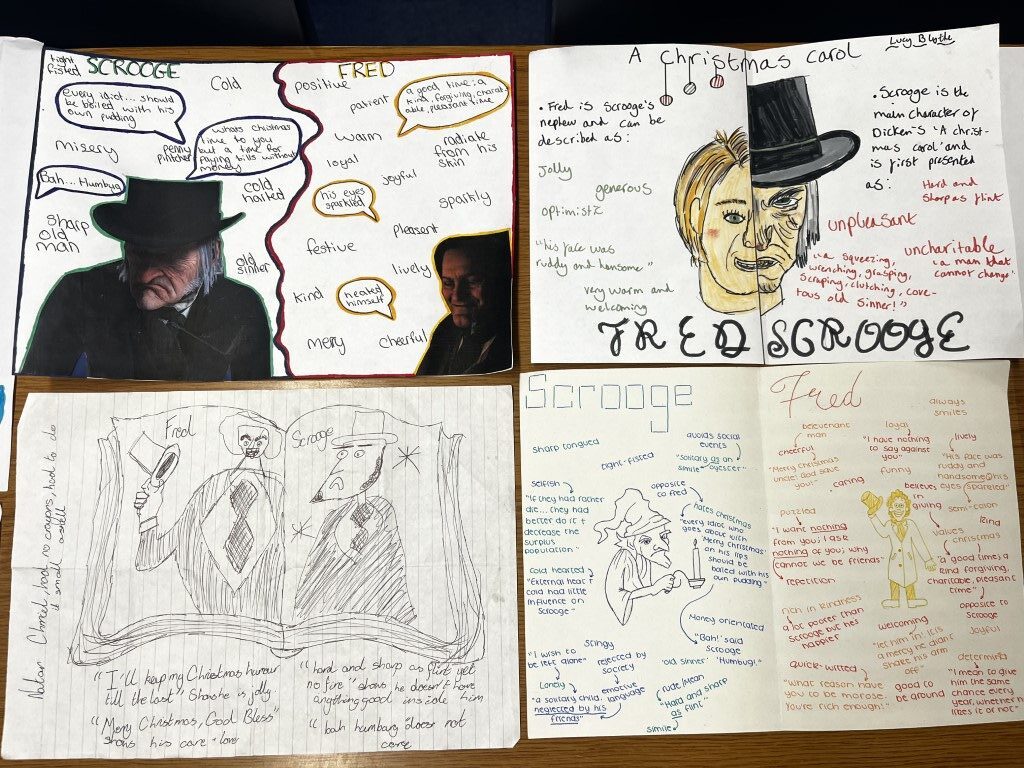 tight
fisted
SCROOGE
Cold
Every idiot... should
be boiled with his
own pudding
Misery
penny
pincher
whats christmas
time to you
but a time for
paying bills without
money
Bah... Humbug
cold
harted
sharp
old
man
old
sinner
FRED
positive
patient
a good time: a
kind, forgiving, charit-
able, pleasant time
warm
radiate
from his
skin
loyal
joyful
his eyes
sparkled
sparkly
pleasent
festive
lively
kind
heated
himself
merry
cheerful
A Christmas carol
Lucy
• Fred is Scrooge's
nephew and can be
described as:
Jolly
generous
optimistic
"his face was
ruddy and hansome"
very warm and
welcoming
• Scrooge is the
main character of
Dicken's 'A christ-
mas carol' and
is first presented
as:
Hard and
sharp as flint
unpleasant
uncharitable
"a man that
cannot change"
"a squeezing,
wrenching, grasping,
scraping, clutching, cove-
tous old sinner!"
FRED SCROOGE
Fred
Scrooge
had no crayons, had to do
it small aswell
"I'll keep my Christmas humour
till the last" Shows he is jolly
"Merry Christmas, God Bless"
shows his care + love
"hard and sharp as flint yet
no fire" shows he doesn't have
anything good inside him
"bah humbug does not
care
Scrooge
sharp tongued
avoids social
events
tight-fisted
"solitary as an
oyester"
simile
selfish
"If they had rather
die... they had
better do it +
decrease the
surplus
population"
opposite
to fred
hates christmas
"every idiot who
goes about with
'Merry Christmas'
on his lips
should be
boiled with his
own pudding"
cold hearted
"External heat +
cold had little
influence on
Scrooge"
Money orientated
"Bah!" said
Scrooge
"Humbug!"
"old sinner"
Stingy
"I wish to
be left alone"
rejected by
society
Lonely
emotive
language
"a solitary child,
neglected by his
friends"
rude/mean
"Hard and sharp
as flint"
simile
Fred
always
smiles
benevenant
man
loyal
cheerful
"I have nothing
to say against
you"
lively
"Merry christmas
uncle! God save
you!"
funny
caring
"His face was
ruddy and
handsome; his
eyes sparkled"
semi-colon
believes
in
giving
puzzled
kind
"I want nothing
from you; I ask
nothing of you; why
cannot we be friends"
repetition
values
christmas
"a good time; a
kind forgiving,
charitable, pleasant
time"
opposite to
Scrooge
rich in kindness
a lot poorer than
Scrooge but he's
happier
welcoming
"let him in! It is
a mercy he didn't
shake his arm
off"
Joyful
quick-witted
"what reason have
you to be morose,
You're rich enough!"
good to
be around
determind
"I mean to give
him the same
chance every
year, whether he
likes it or not"